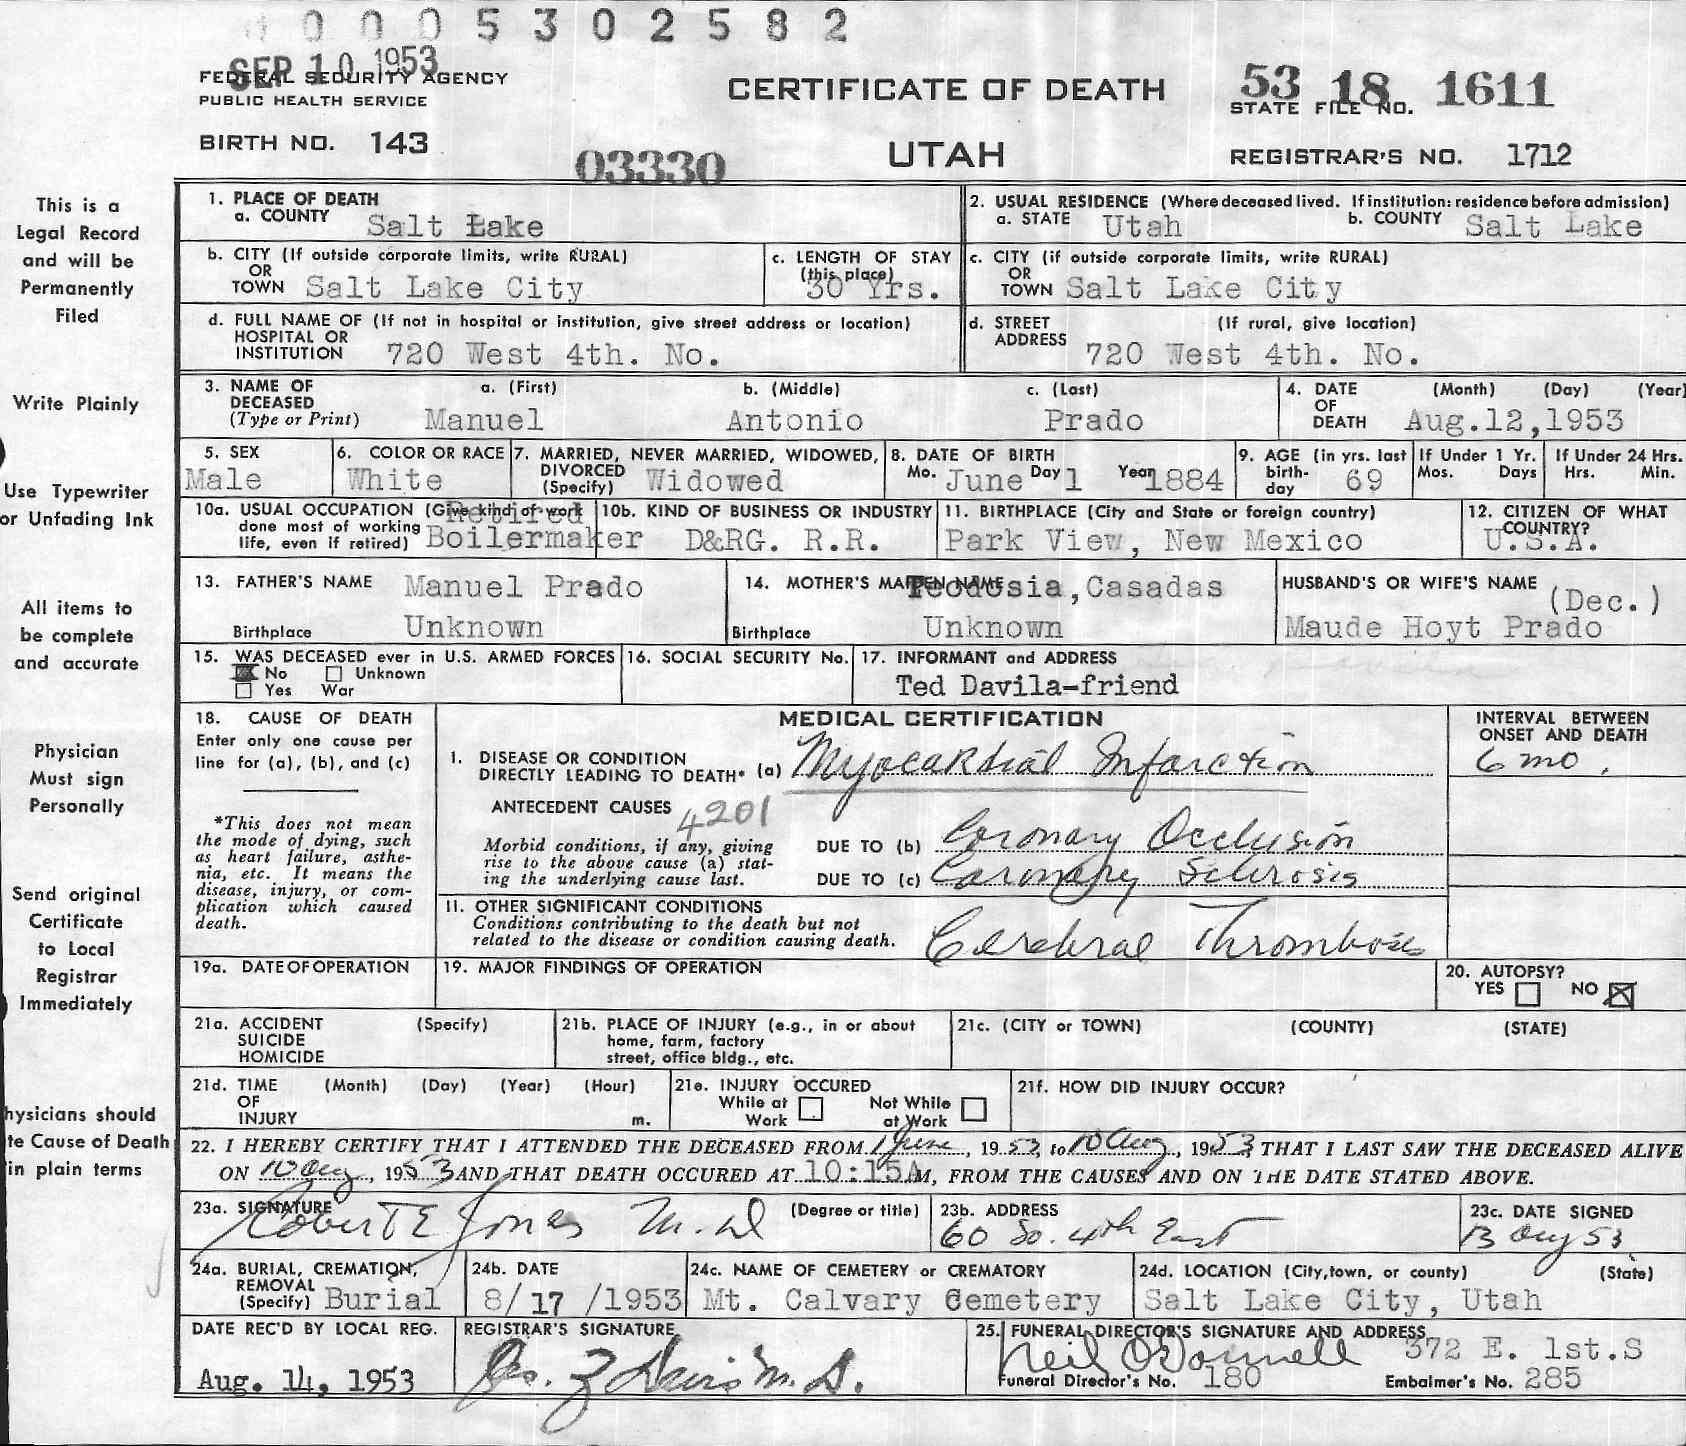 0005302582
SEP 10 1953
FEDERAL SECURITY AGENCY
PUBLIC HEALTH SERVICE
CERTIFICATE OF DEATH
53 18 1611
STATE FILE NO.
BIRTH NO. 143
03330
UTAH
REGISTRAR'S NO. 1712
This is a
Legal Record
and will be
Permanently
Filed
Write Plainly
Use Typewriter
or Unfading Ink
All items to
be complete
and accurate
Physician
Must sign
Personally
Send original
Certificate
to Local
Registrar
Immediately
hysicians should
te Cause of Death
in plain terms
1. PLACE OF DEATH
a. COUNTY Salt Lake
2. USUAL RESIDENCE (Where deceased lived. If institution: residence before admission)
a. STATE Utah b. COUNTY Salt Lake
b. CITY (If outside corporate limits, write RURAL)
OR
TOWN Salt Lake City
c. LENGTH OF STAY
(this place)
30 Yrs.
c. CITY (if outside corporate limits, write RURAL)
OR
TOWN Salt Lake City
d. FULL NAME OF (If not in hospital or institution, give street address or location)
HOSPITAL OR
INSTITUTION 720 West 4th. No.
d. STREET (If rural, give location)
ADDRESS
720 West 4th. No.
3. NAME OF a. (First) b. (Middle) c. (Last)
DECEASED
(Type or Print) Manuel Antonio Prado
4. DATE (Month) (Day) (Year)
OF
DEATH Aug.12,1953
5. SEX
Male
6. COLOR OR RACE
White
7. MARRIED, NEVER MARRIED, WIDOWED,
DIVORCED
(Specify) Widowed
8. DATE OF BIRTH
Mo. June Day 1 Year 1884
9. AGE (in yrs. last
birth-
day 69
If Under 1 Yr.
Mos. Days
If Under 24 Hrs.
Hrs. Min.
10a. USUAL OCCUPATION (Give kind of work
done most of working
life, even if retired) Retired
Boilermaker
10b. KIND OF BUSINESS OR INDUSTRY
D&RG. R.R.
11. BIRTHPLACE (City and State or foreign country)
Park View, New Mexico
12. CITIZEN OF WHAT
COUNTRY?
U.S.A.
13. FATHER'S NAME Manuel Prado
Birthplace Unknown
14. MOTHER'S MAIDEN NAME Teodosia,Casadas
Birthplace Unknown
HUSBAND'S OR WIFE'S NAME
(Dec.)
Maude Hoyt Prado
15. WAS DECEASED ever in U.S. ARMED FORCES
No Unknown
Yes War
16. SOCIAL SECURITY No.
17. INFORMANT and ADDRESS
Ted Davila-friend
18. CAUSE OF DEATH
Enter only one cause per
line for (a), (b), and (c)
*This does not mean
the mode of dying, such
as heart failure, asthe-
nia, etc. It means the
disease, injury, or com-
plication which caused
death.
MEDICAL CERTIFICATION
1. DISEASE OR CONDITION
DIRECTLY LEADING TO DEATH* (a) Myocardial Infarction
INTERVAL BETWEEN
ONSET AND DEATH
6 mo.
ANTECEDENT CAUSES 4201
Morbid conditions, if any, giving
rise to the above cause (a) stat-
ing the underlying cause last.
DUE TO (b) Coronary Occlusion
DUE TO (c) Coronary Sclerosis
11. OTHER SIGNIFICANT CONDITIONS
Conditions contributing to the death but not
related to the disease or condition causing death.
Cerebral Thrombosis
19a. DATE OF OPERATION
19. MAJOR FINDINGS OF OPERATION
20. AUTOPSY?
YES NO
21a. ACCIDENT (Specify)
SUICIDE
HOMICIDE
21b. PLACE OF INJURY (e.g., in or about
home, farm, factory
street, office bldg., etc.
21c. (CITY or TOWN) (COUNTY) (STATE)
21d. TIME (Month) (Day) (Year) (Hour)
OF
INJURY m.
21e. INJURY OCCURED
While at Not While
Work at Work
21f. HOW DID INJURY OCCUR?
22. I HEREBY CERTIFY THAT I ATTENDED THE DECEASED FROM 1 June, 1953, to 10 Aug, 1953 THAT I LAST SAW THE DECEASED ALIVE
ON 10 Aug, 1953 AND THAT DEATH OCCURED AT 10:15A M, FROM THE CAUSES AND ON THE DATE STATED ABOVE.
23a. SIGNATURE (Degree or title)
Robert E Jones M.D
23b. ADDRESS
60 So. 4th East
23c. DATE SIGNED
13 Aug 53
24a. BURIAL, CREMATION,
REMOVAL
(Specify) Burial
24b. DATE
8/17/1953
24c. NAME OF CEMETERY or CREMATORY
Mt. Calvary Cemetery
24d. LOCATION (City,town, or county) (State)
Salt Lake City, Utah
DATE REC'D BY LOCAL REG.
Aug. 14, 1953
REGISTRAR'S SIGNATURE
M.D.
25. FUNERAL DIRECTOR'S SIGNATURE AND ADDRESS
Neil O'Donnell 372 E. 1st.S
Funeral Director's No. 180 Embalmer's No. 285